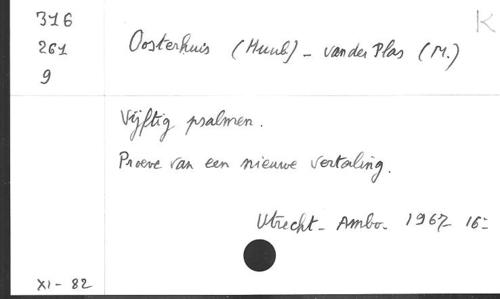 316
K
261
Oosterhuis (Huub) - van der Plas (M.)
9
Vijftig psalmen.
Proeve van een nieuwe vertaling.
Utrecht - Ambo - 1967 - 16=
XI - 82